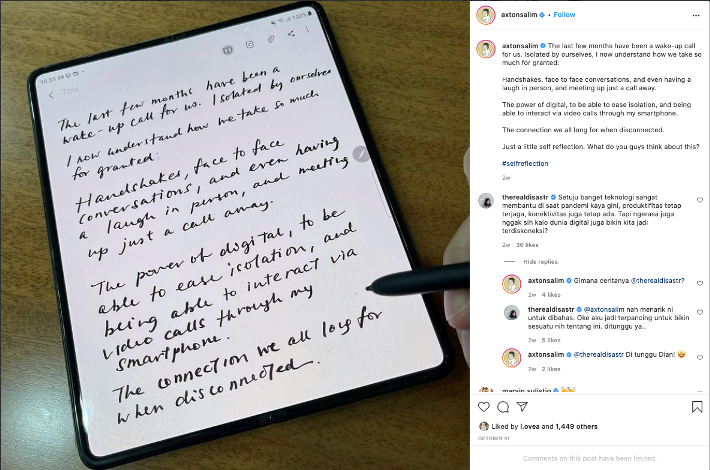 10:55 PM
100%
Title
The last few months have been a
wake-up call for us. Isolated by ourselves
I now understand how we take so much
for granted:
Handshakes, face to face
conversations, and even having
a laugh in person, and meeting
up just a call away.
The power of digital, to be
able to ease isolation, and
being able to interact via
video calls through my
smartphone.
The connection we all long for
when disconnected.
axtonsalim • Follow
axtonsalim The last few months have been a wake-up call
for us. Isolated by ourselves, I now understand how we take so
much for granted:
Handshakes, face to face conversations, and even having a
laugh in person, and meeting up just a call away.
The power of digital, to be able to ease isolation, and being
able to interact via video calls through my smartphone.
The connection we all long for when disconnected.
Just a little self reflection. What do you guys think about this?
#selfreflection
2w
therealdisastr Setuju banget teknologi sangat
membantu di saat pandemi kaya gini, produktifitas tetap
terjaga, konektivitas juga tetap ada. Tapi ngerasa juga
nggak sih kalo dunia digital juga bikin kita jadi
terdiskoneksi?
2w 36 likes
Hide replies
axtonsalim Gimana ceritanya @therealdisastr?
2w 4 likes
therealdisastr @axtonsalim nah menarik ni
untuk dibahas. Oke aku jadi terpancing untuk bikin
sesuatu nih tentang ini, ditunggu ya..
2w 5 likes
axtonsalim @therealdisastr Di tunggu Dian! 🤩
2w 2 likes
marvin_sulistio
Liked by i.ovea and 1,449 others
OCTOBER 31
Comments on this post have been limited.